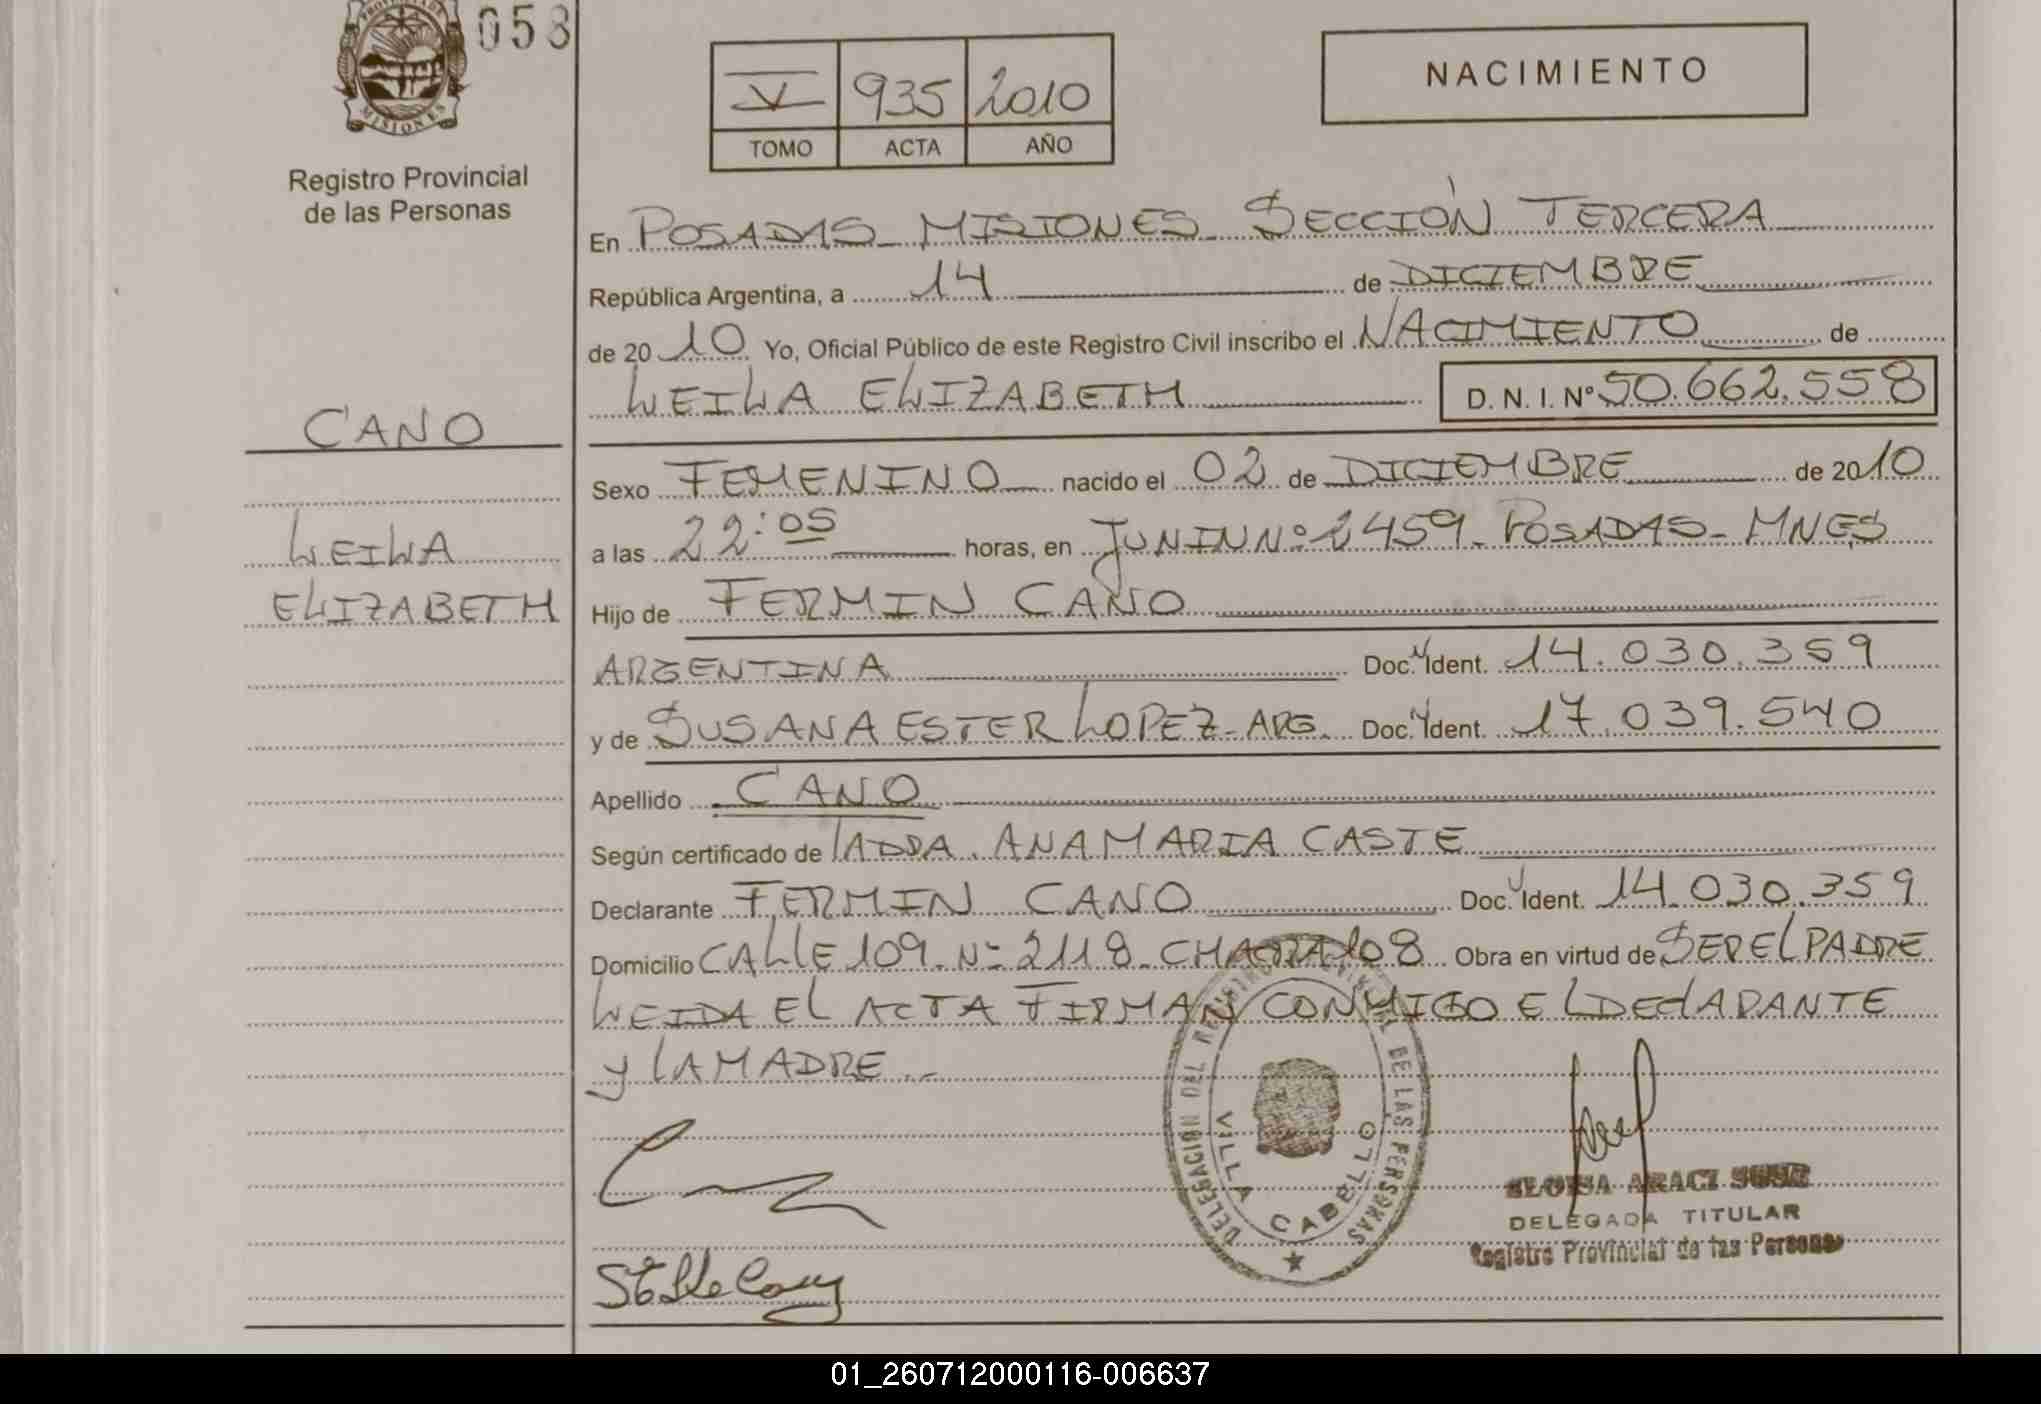 058
PROVINCIA DE
MISIONES
Registro Provincial
de las Personas
V 935 2010
TOMO ACTA AÑO
NACIMIENTO
En POSADAS - MISIONES - SECCIÓN TERCERA
República Argentina, a 14 de DICIEMBRE
de 2010 Yo, Oficial Público de este Registro Civil inscribo el NACIMIENTO de
LEILA ELIZABETH D. N. I. Nº 50.662.558
CANO
LEILA
ELIZABETH
Sexo FEMENINO nacido el 02 de DICIEMBRE de 2010
a las 22:05 horas, en JUNIN Nº 2459 - POSADAS - MNES
Hijo de FERMIN CANO
ARGENTINA Doc. y Ident. 14.030.359
y de SUSANA ESTER LOPEZ - ARG. Doc. y Ident. 17.039.540
Apellido CANO
Según certificado de LA DRA. ANA MARIA CASTE
Declarante FERMIN CANO Doc. y Ident. 14.030.359
Domicilio CALLE 109. Nº 2118 - CHACRA 108 Obra en virtud de SER EL PADRE
LEIDA EL ACTA FIRMAN CONMIGO EL DECLARANTE
y LA MADRE.-
DELEGACION DEL REGISTRO DE LAS PERSONAS
VILLA CABELLO
ELOISA ARACI
DELEGADA TITULAR
Registro Provincial de las Personas
01_260712000116-006637